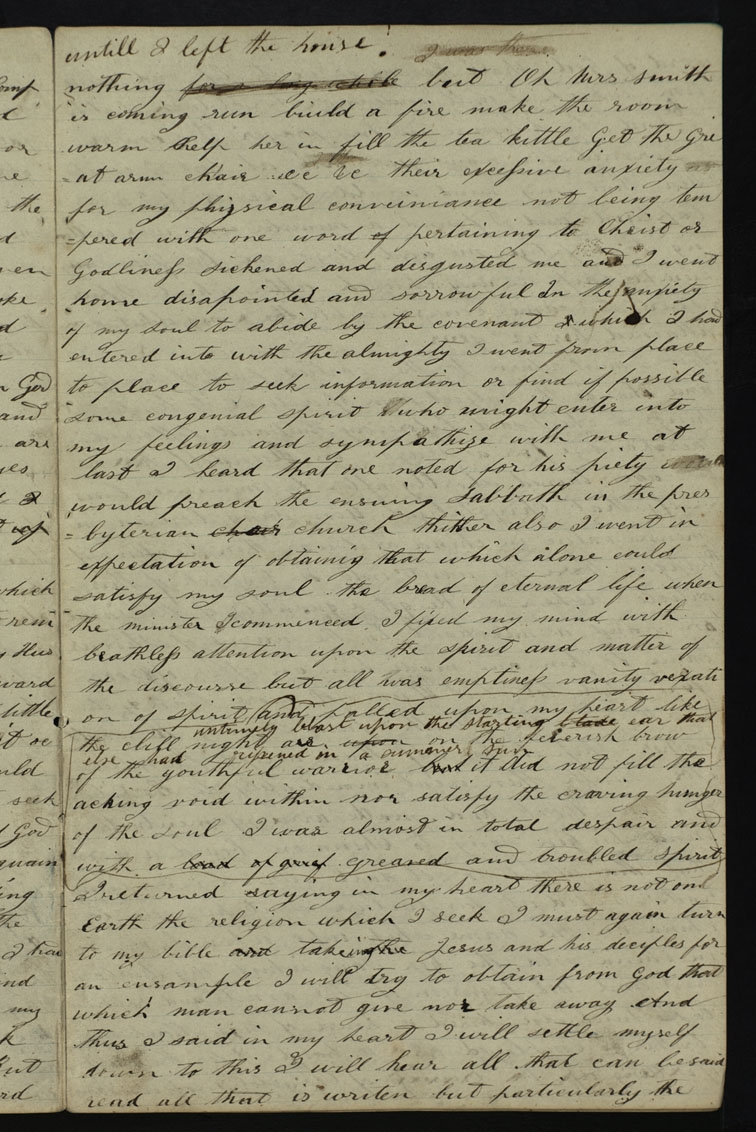 untill I left the house.
nothing for a long while but Oh Mrs Smith
is coming run biuld a fire make the room
warm help her in fill the tea kittle Get the gre
-at arm chair &c &c their excessive anxiety
for my phisical conveiniance not being tem
=pered with one word of pertaining to Christ or
Godliness sickened and disgusted me and I went
home disapointed and sorrowful In the anxiety
of my soul to abide by the covenant which I had
entered into with the almighty I went from place
to place to seek information or find if possible
some congenial spirit who might enter into
my feelings and sympathize with me at
last I heard that one noted for his piety
would preach the ensuing Sabbath in the pres
=byterian church thither also I went in
expectation of obtainig that which alone could
satisfy my soul the bread of eternal life when
the minister commenced I fixed my mind with
beathless attention upon the spirit and matter of
the discourse but all was emptiness vanity vexati
on of spirit and palled upon my heart like
untimely blast upon the starting blade ear that
the chill night air upon on the feverish brow
else had ripened in a summer sun
of the youthful warrior but it did not fill the
acking void within nor satisfy the craving hunger
of the soul I was almost in total despair and
with a load of grief greaved and troubled spirit
I returned saying in my heart there is not on
Earth the religion which I seek I must again turn
to my bible and take Jesus and his deciples for
an ensample I will try to obtain from God that
which man cannot give nor take away And
thus I said in my heart I will settle myself
down to this I will hear all that can be said
read all that is writen but particularly the